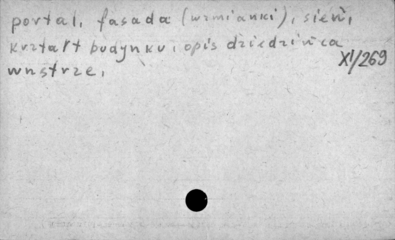 portal, fasada (wzmianki), sień,
kształt budynku, opis dziedzińca
XI/269
wnętrze,